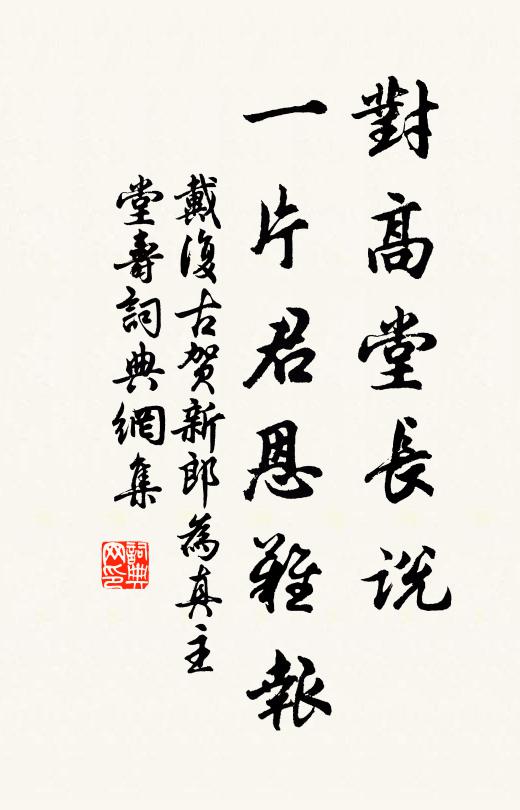 對高堂長説
一片君恩難報
戴復古賀新郎為真主
堂壽詞典網集
詞典
网印